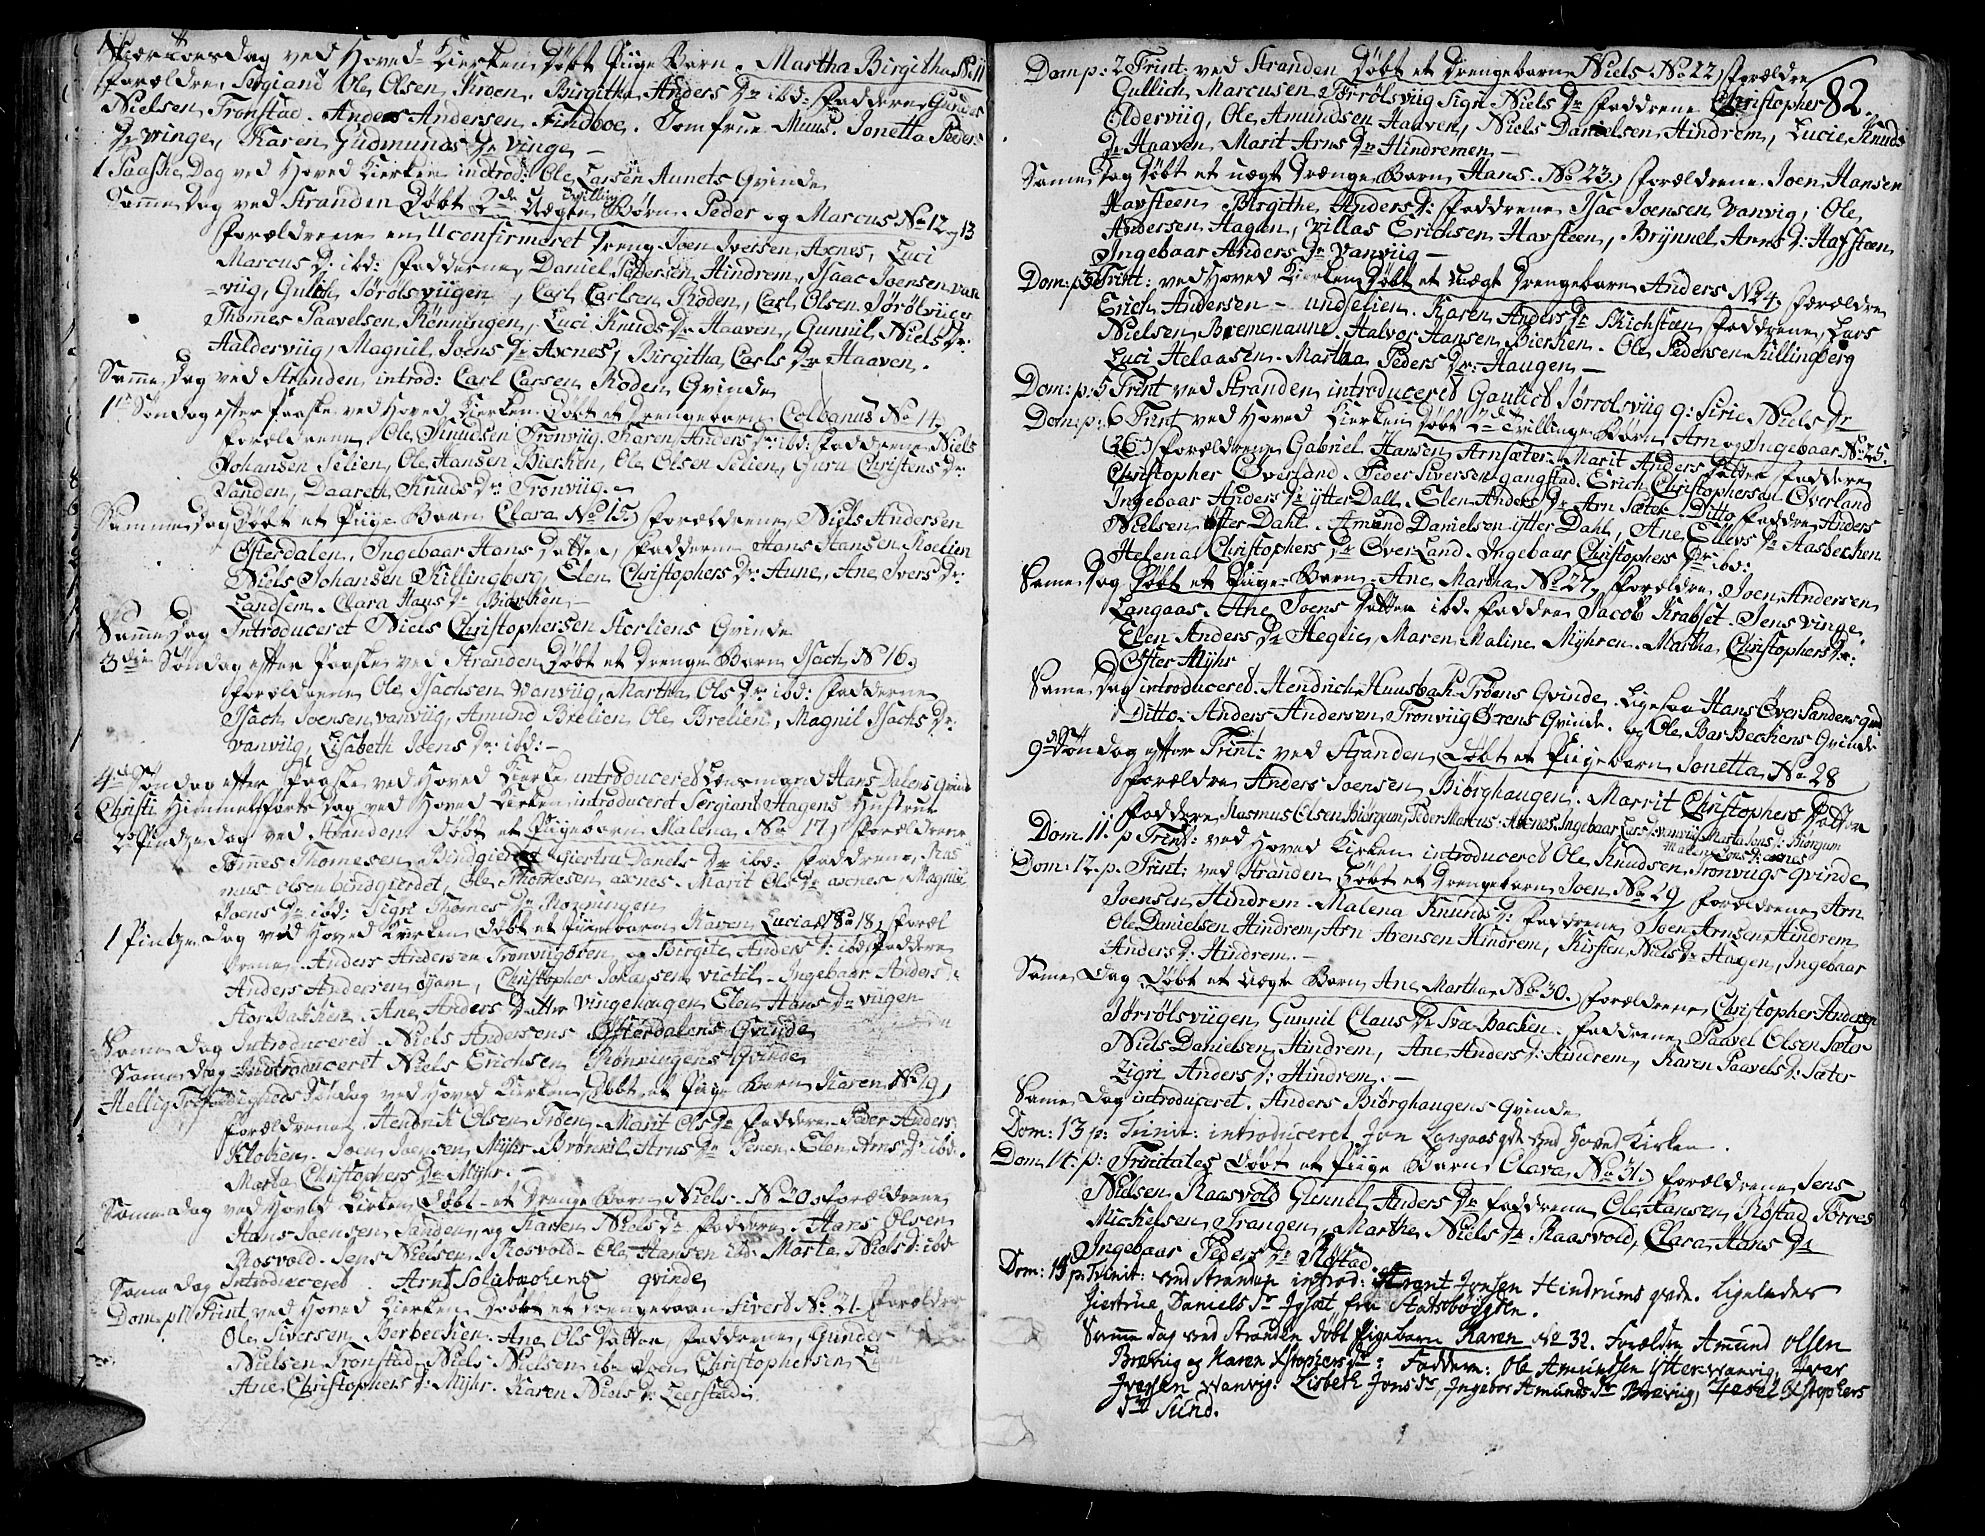 Skiær Torsdag ved Hoved-Kierken Døbt Piige Barn. Martha Birgitha No 11
Forældre Sergiand Ole Olsen Kroen. Birgitha Anders Dr ibd: Fadderne Gunder
Nielsen Tronstad. Anders Andersen Findboe. Jomfrue Muus. Jonetta Peders
Dr Vinge, Karen Gudmunds Dr Vinge –
1 Paaske Dag ved Hoved Kierken introd: Ole Larsen Aunets Qvinde
Samme Dag ved Stranden Døbt 2de Uægte Tvilling Børn. Peder og Marcus No 12 og 13
Forældrene en Uconfirmeret Dreng Joen Iversen Axnes, Luci
Marcus Dr ibd: Fadderne Daniel Pedersen Hindrem, Isaac Joensen Van
=viig, Gulich Jørølsviigen, Carl Carlsen Roden, Carl Olsen Jørølsviigen
Thomes Paavelsen Rønningen, Luci Knuds Dr Haaven, Gunnil Niels Dr:
Haldervüg, Magnil Joens Dr Axnes, Birgitha Carls Dr Haaven.
Samme Dag ved Stranden introd: Carl Carsen Roden Qvinde
1te Søndag efter Paaske ved Hoved Kierken Døbt et Drengebarn Colbanus No 14
Forældrene Ole Knudsen Tronviig, Karen Anders Dr: ibd: Fadderne Niels
Johansen Selien, Ole Hansen Bierken, Ole Olsen Selien, Guru Christens Dr
Sanden, Daareth Knuds Dr: Tronviig.
Samme Dag Døbt et Piige Barn Clara No 15 Forældrene Niels Andersen
Østerdalen, Ingebaar Hans Datter, Fadderne Hans Hansen Moelien
Niels Johansen Killingberg, Elen Christophers Dr: Aune, Ane Ivers Dr:
Landsem. Clara Hans Dr Bierken –
Samme Dag Introduceret Niels Christophersen Storliens Qvinde
3die Søndag efter Paaske ved Stranden Døbt et Drenge Barn Isach No 16
Forældrene Ole Isachsen Vanviig, Martha Ols Dr: ibd: Fadderne
Isach Joensen Vanviig, Amund Brelien, Ole Brelien, Magnil Isachs Dr:
Vanviig, Lisabeth Joens Dr: ibd: –
4de Søndag efter Paaske ved Hoved Kierke introduceret Lensmand Hans Dalens Qvinde
Christi Himmelfarts Dag ved Hoved Kierken introduceret Sergiant Hagens Hustrue
2 Pindse dag ved Stranden døbt et Piigebarn Malena No 17 Forældrene
Tønnes Thomesen Bindgierdet Giertru Daniels Dr ibd: Fadderne Ras
mus Olsen bindgierdet, Ole Thomesen axnes. Marit Ols Dr axnes, Magnil
Joens Dr ibd: Sigri Thomes Dr Rønningen
1 Pintse dag ved Hoved Kierken døbt et Piigebarn Karen Lucia No 18, Foræl
drene Anders Andersen Tronviigøren og Birgite Anders Dr: ibd: Faddere
Anders Andersen øjam, Christopher Johansen victil. Ingebaar Anders Dr
Storbakken. Ane Anders Datter Vingehaugen, Elen Hans Dr viigen
Same dag Introduceret Niels Andersens Østerdalens Qvinde
Same dag Introduceret Niels Erichsen Rønningens Qvinde
Hellig Trefoldigheds Søndag ved Hoved Kierken Døbt et Piige Barn Karen No 19,
Forældrene Hendrik Olsen Troen, Marit Ols Dr Faddere Peder Anders:
Klochen. Joen Joensen Myhr. Brønnil Arns Dr Penen. Elen Arns Dr ibd.
Marta Christophers Dr Myhr. –
Same dag ved Hoved Kierken Døbt et Drenge Barn Niels. No 20. Forældrene
Hans Joensen Sanden, og Karen Niels Dr. Faddere. Hans Olsen
Rosvold. Jens Nielsen Rosvold. Ole Hansen ibd. Marte Niels Dr: ibd
Same dag Introduceret. Arnt Solabachens qvinde
Dom: p 1 Trint ved Hoved Kierken Døbt et drengebarn Sivert No 21. Forældre
Ole Siversen Berbechen. Ane Ols Datter Fadderne, Gunder
Nielsen Tronstad. Niels Nielsen ibd. Joen Christophersen
Ane Christophers Dr: Myhr. Karen Niels Dr Leerstad.
82.
Dom p: 2 Trint: ved Stranden Døbt et Drengebarn Niels No 22, Forældre
Gullich Marcusen Jørrølsviig Sigri Niels Dr Faddrene Christopher
Olderviig, Ole Amundsen Haaven, Niels Danielsen Hindrem, Lucie Knuds
Dr Haaven Marit Arns Dr Hindremen –
Same Dag Døbt et uægt Drænge Barn Hans. No 23, Forældrene Joen Hansen
Havsteen, Birgithe Anders Dr: Faddrene Isac Joensen Vanvig, Ole
Andersen Hagen, Villas Erichsen Havsteen, Brynnel Arns Dr: Hafsteen
Ingebaar Anders Dr Vanviig –
Dom: p 3 Trint: ved Hoved Kierken Døbt et Uægt Drengebarn Anders No 24, Forældre
Erich Andersen – undselien. Karen Anders Dr Richsteen Faddrene, Lars
Nielsen Bremenaune. Halvor Hansen Bierken. Ole Pedersen Killingberg
Luci Helaasen. Martha Peders Dr: Haugen –
Dom: p: 5 Trint ved Stranden introduceret Gaulich Jørrølsviig q: Sirie Niels Dr
Dom: p: 6 Trint ved Hoved Kierken Døbt 2de Tvillinge Børn Arn og Ingebaar No 25.
(26) Forældrene Gabriel Hansen Arnsæter. Marit Anders Datter Faddere
Christopher Overland. Peder Siversen gangstad. Erich Christophersen Overland
Ingebaar Anders Dr ytter Dall. Elen Anders Dr Arn Sæter. Ditto Faddre Anders
Nielsen ytter Dahl. Amund Danielsen ytter Dahl, Ane Ellevs Dr Aasbechen.
Helena Christophers Dr Overland. Ingebaar Christophers Dr ibd:
Same Dag Døbt et Piige-Barn Ane Martha No 27, Forældre Joen Andersen
Langaas. Ane Joens Datter ibd. Faddre Jacob Krabset. Jens Vinge.
Elen Anders Dr Heglie, Maren Maline Myhren. Martha Christophers Dr:
Øfter Myhr
Same Dag introduceret. Hendrich Huusbak Troens Qvinde, Ligesaa Hans Øver Landens qvd
Ditto. Anders Andersen Tronviig Ørens Qvinde. og Ole BarBechens Qvinde
9de Søndag efter Trint: ved Stranden Døbt et Piigebarn Jonetta No 28
Forældre Anders Joensen Biørghaugen. Marrit Christophers Datter
Faddere Rasmus Olsen Biørgum, Peder Marcus: Axnes, Ingebaar Lars Dr vanviig Marta Jons Dr: Biørgum
Malen Jons Dr: axnes
Dom: 11. p Trint: ved Hoved Kirken introduceret Ole Knudsen Tronvigs Qvinde
Dom: 12. p. Trint: ved Stranden Døbt et Drengebarn Joen No 29 Forældrene Arn
Joensen Hindrem. Malena Knunds Dr: Faddrene Joen Arnsen Hindrem
Ole Danielsen Hindrem, Arn Avensen Hindrem, Kirsten Niels Dr Hagen, Ingebaar
Anders Dr: Hindrem. –
Same Dag Døbt et Uægte Barn Ane Martha No 30. Forældrene Christopher Andersen
Jørrølsviigen Gunnil Claus Dr Svæ Bachen. Faddrene Paavel Olsen Sæter
Niels Danielsen Hindrem, Ane Anders Dr: Hindrem, Karen Paavels Dr: Sæter
Zigri Anders Dr: Hindrem. –
Same Dag introduceret. Anders Biørghaugens Qvinde
Dom: 13 p: Trinit: introduceret Jon Langaas qvd. ved Hoved Kirken.
Dom. 14. p: Trinitates Døbt et Piige Barn Clara No 31. Forældrene Jens
Nielsen Raasvold Glennel Anders Dr Faddrene Ole Hansen Røstad Torres
Michelsen Trangen, Marthe Niels Dr Raasvold, Clara Hans Dr
Ingebaar Peders Dr Røstad.
Dom: 15 p: Trinit: ved Stranden introd: Arent Jonsen Hindrums qvde. Ligeledes
Giertrue Daniels Dr Igsæt fra Statsbøygden.
Samme dag ved Stranden døbt Pigebarn Karen No 32. Forældre Amund Olsen
Brævig og Karen Xstophers Dr: Faddere: Ole Amundsen Ytter-Vanvig, Iver
Iversen Vanvig: Lisbeth Jons Dr, Ingebor Amunds Dr Brævig, Zesel Xstophers
Dr Sund.